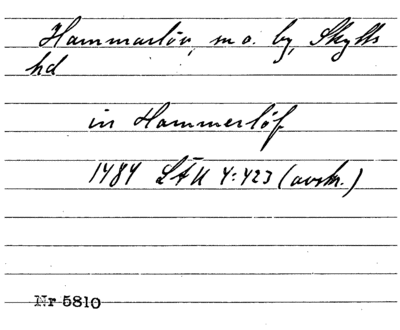 Hammarlöv, sn o. by, Skytts
hd
in Hammerlöf
1484 LÄU 4:423 (avskr.)
Nr 5810